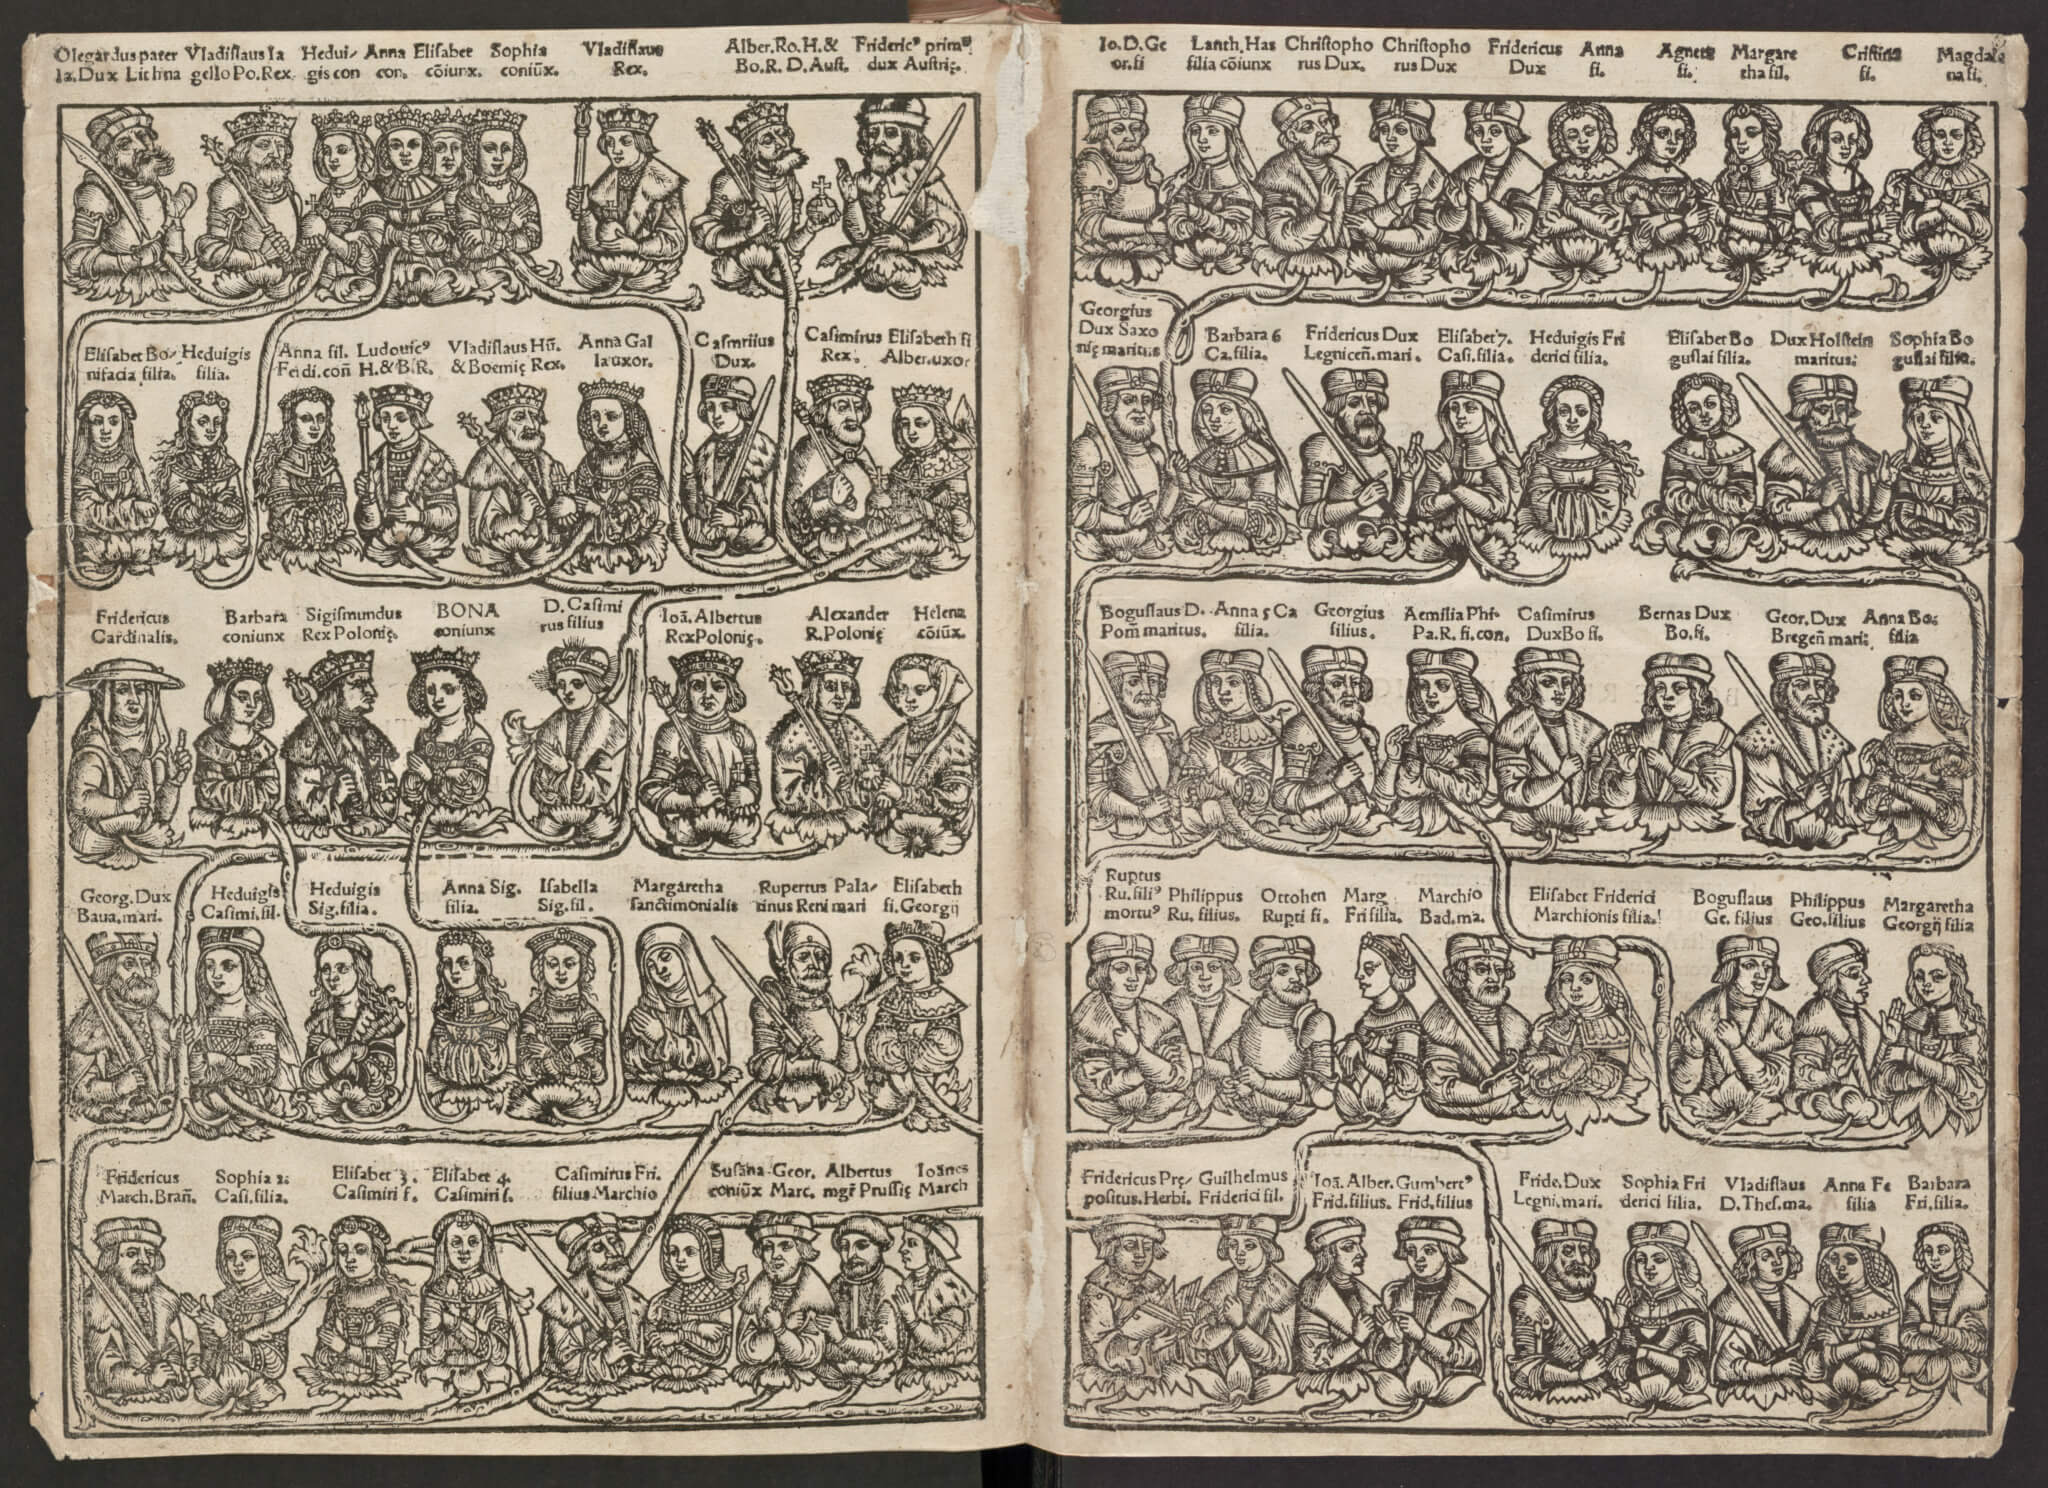 Olegardus pater Vladislaus Ia Hedui- Anna Elisabet Sophia Vladislaus Alber. Ro. H. & Frideric⁹ prim⁹
Ia. Dux Lithna gello Po. Rex gis con con. cõiunx. coniũx. Rex. Bo. R. D. Aust. dux Austrię.
Elisabet Bo- Heduigis Anna fil. Ludouic⁹ Vladislaus Hũ. Anna Gal Casmriius Casimirus Elisabeth fi
nifacia filia. filia. Ferdi. coñ H. & B. R. & Boemię Rex. la uxor. Dux. Rex. Alber. uxor
Fridericus Barbara Sigismundus BONA D. Casimi Ioã. Albertus Alexander Helena
Cardinalis. coniunx Rex Polonię. coniunx rus filius Rex Polonię. R. Polonię cõiũx.
Georg. Dux Heduigis Heduigis Anna Sig. Isabella Margaretha Rupertus Pala- Elisabeth
Baua. mari. Casimi. fil. Sig. filia. filia. Sig. fil. sanctimonialis tinus Reni mari fi. Georgij
Fridericus Sophia 2. Elisabet 3. Elisabet 4. Casimirus Fri. Susãna Geor. Albertus Ioãnes
March. Brañ. Casi. filia. Casimiri f. Casimiri f. filius Marchio coniũx Marc. mgr̃ Prussię March
Io. D. Ge Lanth. Has Christopho Christopho Fridericus Anna Agnes Margare Cristina Magdale
or. fi filia cõiunx rus Dux. rus Dux Dux fi. fi. tha fil. fi. na fi.
Georgius
Dux Saxo Barbara 6 Fridericus Dux Elisabet 7. Heduigis Fri Elisabet Bo Dux Holstein Sophia Bo
nię maritus Ca. filia. Legniceñ. mari. Casi. filia. derici filia. guslai filia. maritus. guslai filia.
Boguslaus D. Anna 5 Ca Georgius Aemilia Phi- Casimirus Bernas Dux Geor. Dux Anna Bo.
Pom̃ maritus. filia. filius. Pa. R. fi. con. Dux Bo fi. Bo. fi. Bregeñ mari. filia
Ruptus
Ru. fili⁹ Philippus Ottohen Marg Marchio Elisabet Friderici Boguslaus Philippus Margaretha
mortu⁹ Ru. filius. Rupti fi. Fri filia. Bad. ma. Marchionis filia. Ge. filius Geo. filius Georgij filia
Fridericus Prę- Guilhelmus Ioã. Alber. Gumbert⁹ Fride. Dux Sophia Fri Vladislaus Anna Fe Barbara
positus. Herbi. Friderici fil. Frid. filius. Frid. filius Legni. mari. derici filia. D. Thes. ma. filia Fri. filia.